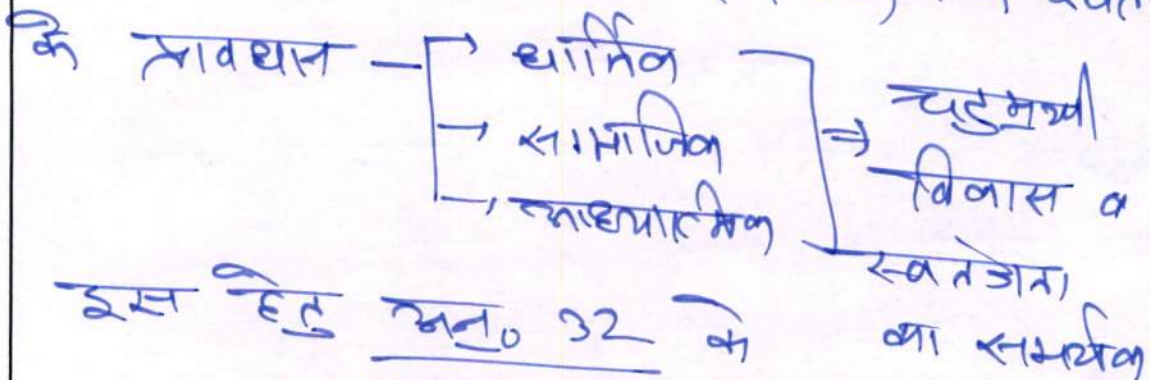 के प्रावधान → धार्मिक
→ सामाजिक
→ आध्यात्मिक
⇒ चहुमुखी
विकास व
स्वतंत्रता
का समर्थक
इस हेतु अनु० 32 के